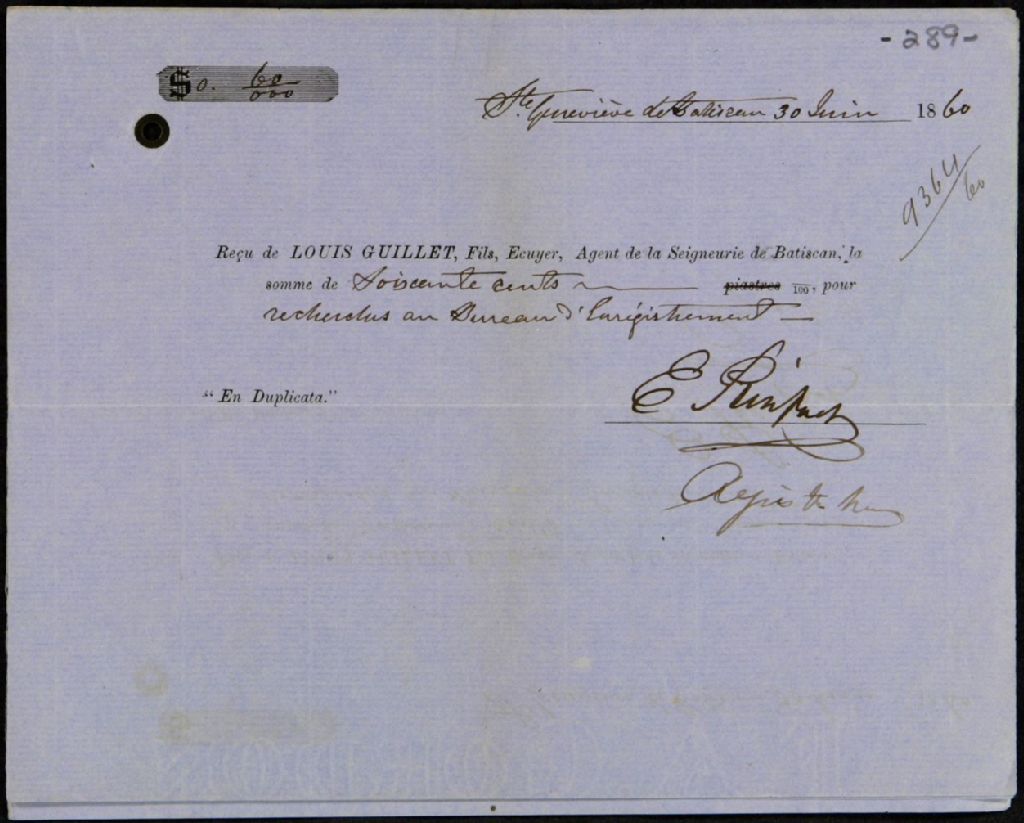 - 289 -
$ 0. 60/000
Ste Geneviève de Batiscan 30 Juin 1860
9364/60
Reçu de LOUIS GUILLET, Fils, Ecuyer, Agent de la Seigneurie de Batiscan, la
somme de Soiscante cents piastres /100, pour
recherches au Bureau d'Enrégistrement —
"En Duplicata."
E